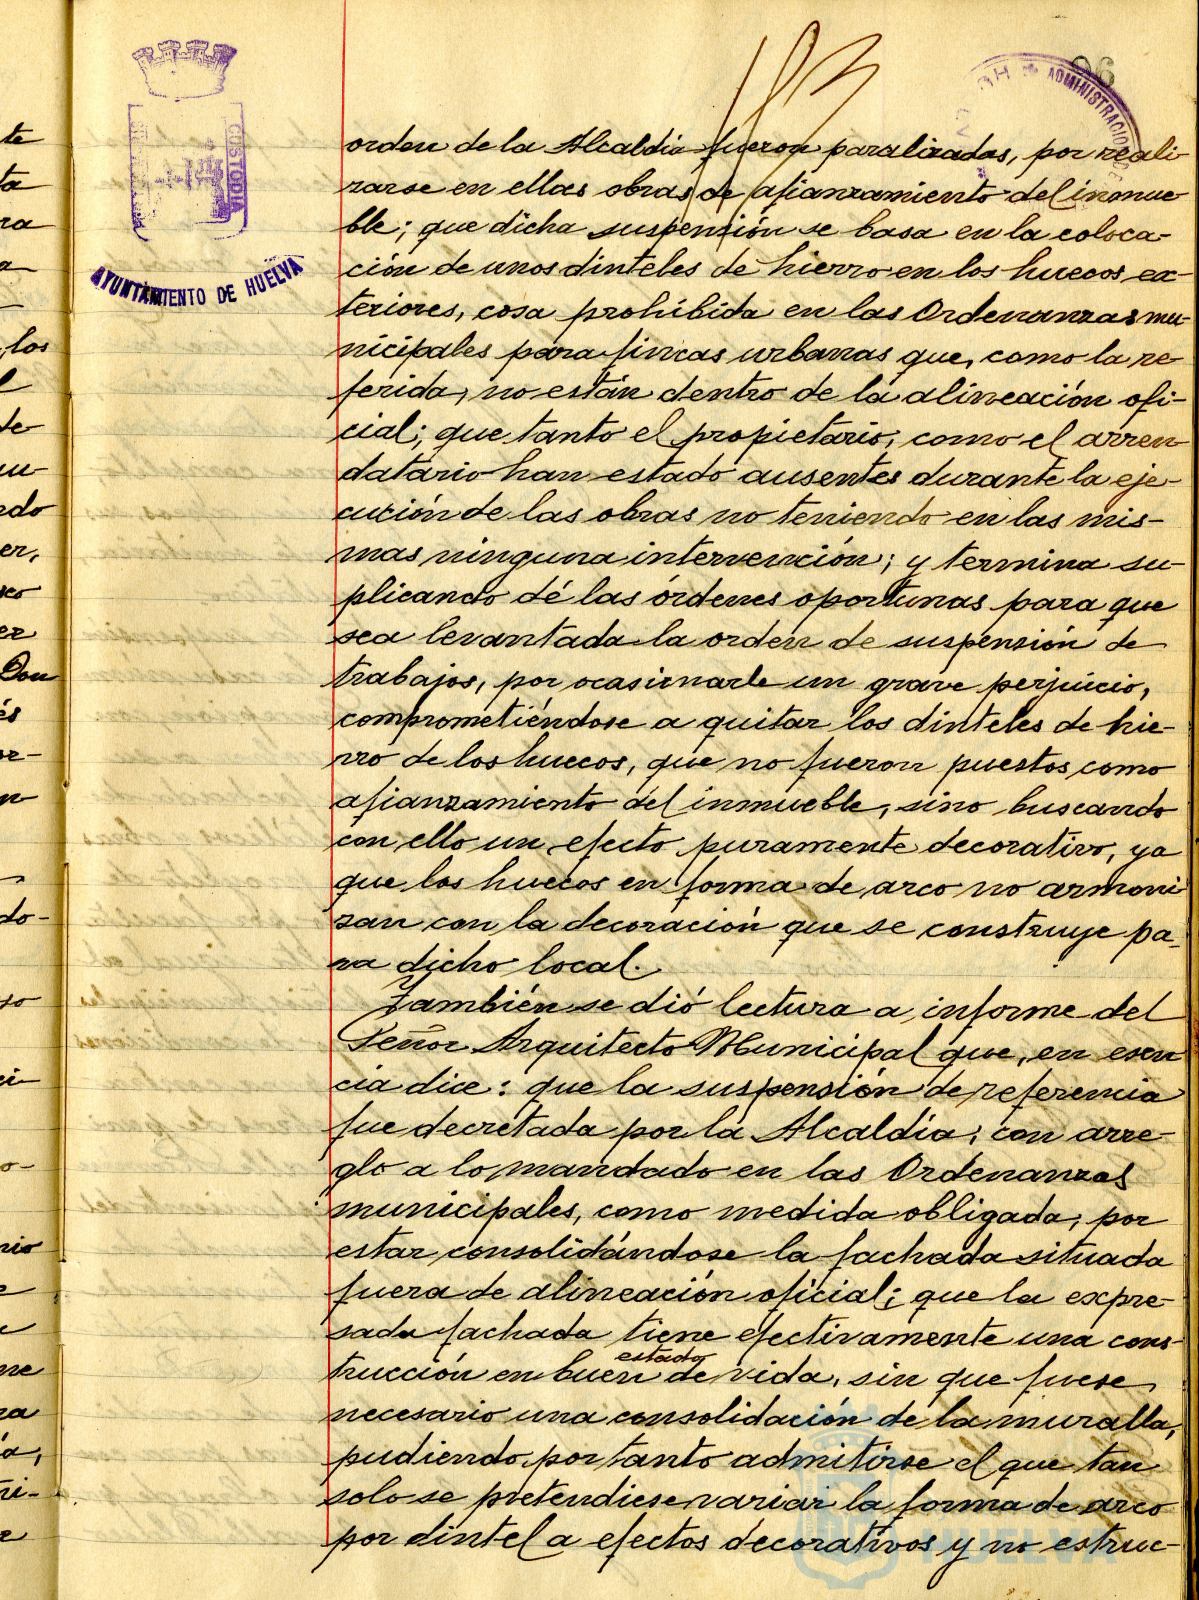 96
ADMINISTRACION DE
CUSTODIA
AYUNTAMIENTO DE HUELVA
orden de la Alcaldia fueron paralizadas, por reali
zarse en ellas obras de afianzamiento del inmue
ble; que dicha suspensión se basa en la coloca-
ción de unos dinteles de hierro en los huecos ex-
teriores, cosa prohibida en las Ordenanzas mu-
nicipales para fincas urbanas que, como la re-
ferida, no están dentro de la alineación ofi-
cial; que tanto el propietario, como el arren
datario han estado ausentes durante la eje-
cución de las obras no teniendo en las mis-
mas ninguna intervención; y termina su-
plicando dé las órdenes oportunas para que
sea levantada la orden de suspensión de
trabajos, por ocasionarle un grave perjuicio,
comprometiéndose a quitar los dinteles de hie-
rro de los huecos, que no fueron puestos como
afianzamiento del inmueble, sino buscando
con ello un efecto puramente decorativo, ya
que los huecos en forma de arco no armoni
zan con la decoración que se construye pa-
ra dicho local.
También se dió lectura a informe del
Señor Arquitecto Municipal que, en esen
cia dice: que la suspensión de referencia
fue decretada por la Alcaldía, con arre-
glo a lo mandado en las Ordenanzas
municipales, como medida obligada, por
estar consolidándose la fachada situada
fuera de alineación oficial; que la expre-
sada fachada tiene efectivamente una cons-
trucción en buen estado de vida, sin que fuese
necesario una consolidación de la muralla,
pudiendo por tanto admitirse el que tan
solo se pretendiese variar la forma de arco
por dintel a efectos decorativos y no estruc-
HUELVA